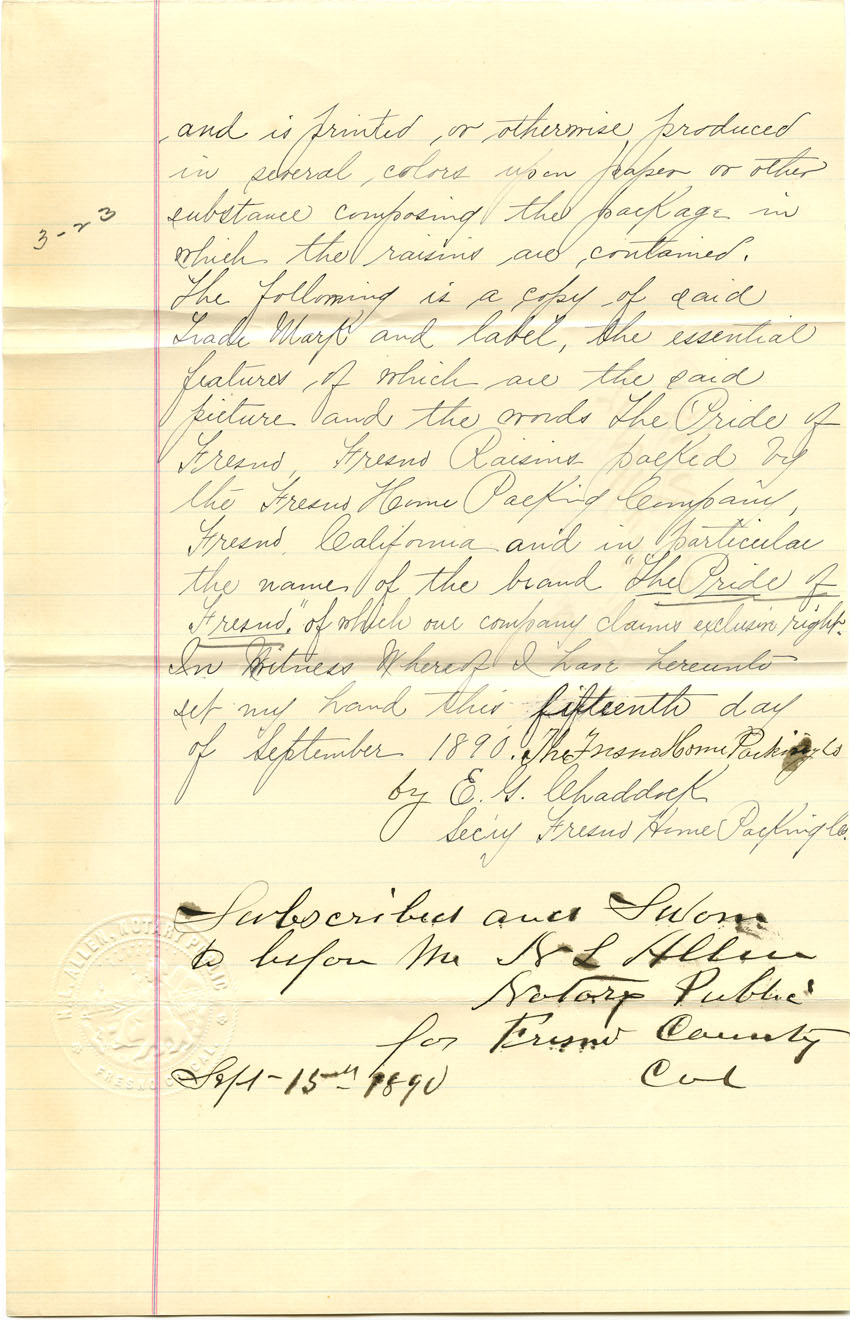 3-23
and is printed, or otherwise produced
in several colors upon paper or other
substance composing the package in
which the raisins are contained.
The following is a copy of said
Trade Mark and label, the essential
features of which are the said
picture and the words The Pride of
Fresno, Fresno Raisins packed by
the Fresno Home Packing Company,
Fresno, California and in particular
the name of the brand "The Pride of
Fresno." of which our company claims exclusive right.
In Witness Whereof I have hereunto
set my hand this fifteenth day
of September 1890. The Fresno Home Packing Co
by E. G. Chaddock
Sec'y Fresno Home Packing Co.
Subscribed and Sworn
to before me N L Allen
Notary Public
for Fresno County
Sept 15th 1890 Cal
ALLEN, NOTARY PUBLIC
FRESNO CO. CAL.